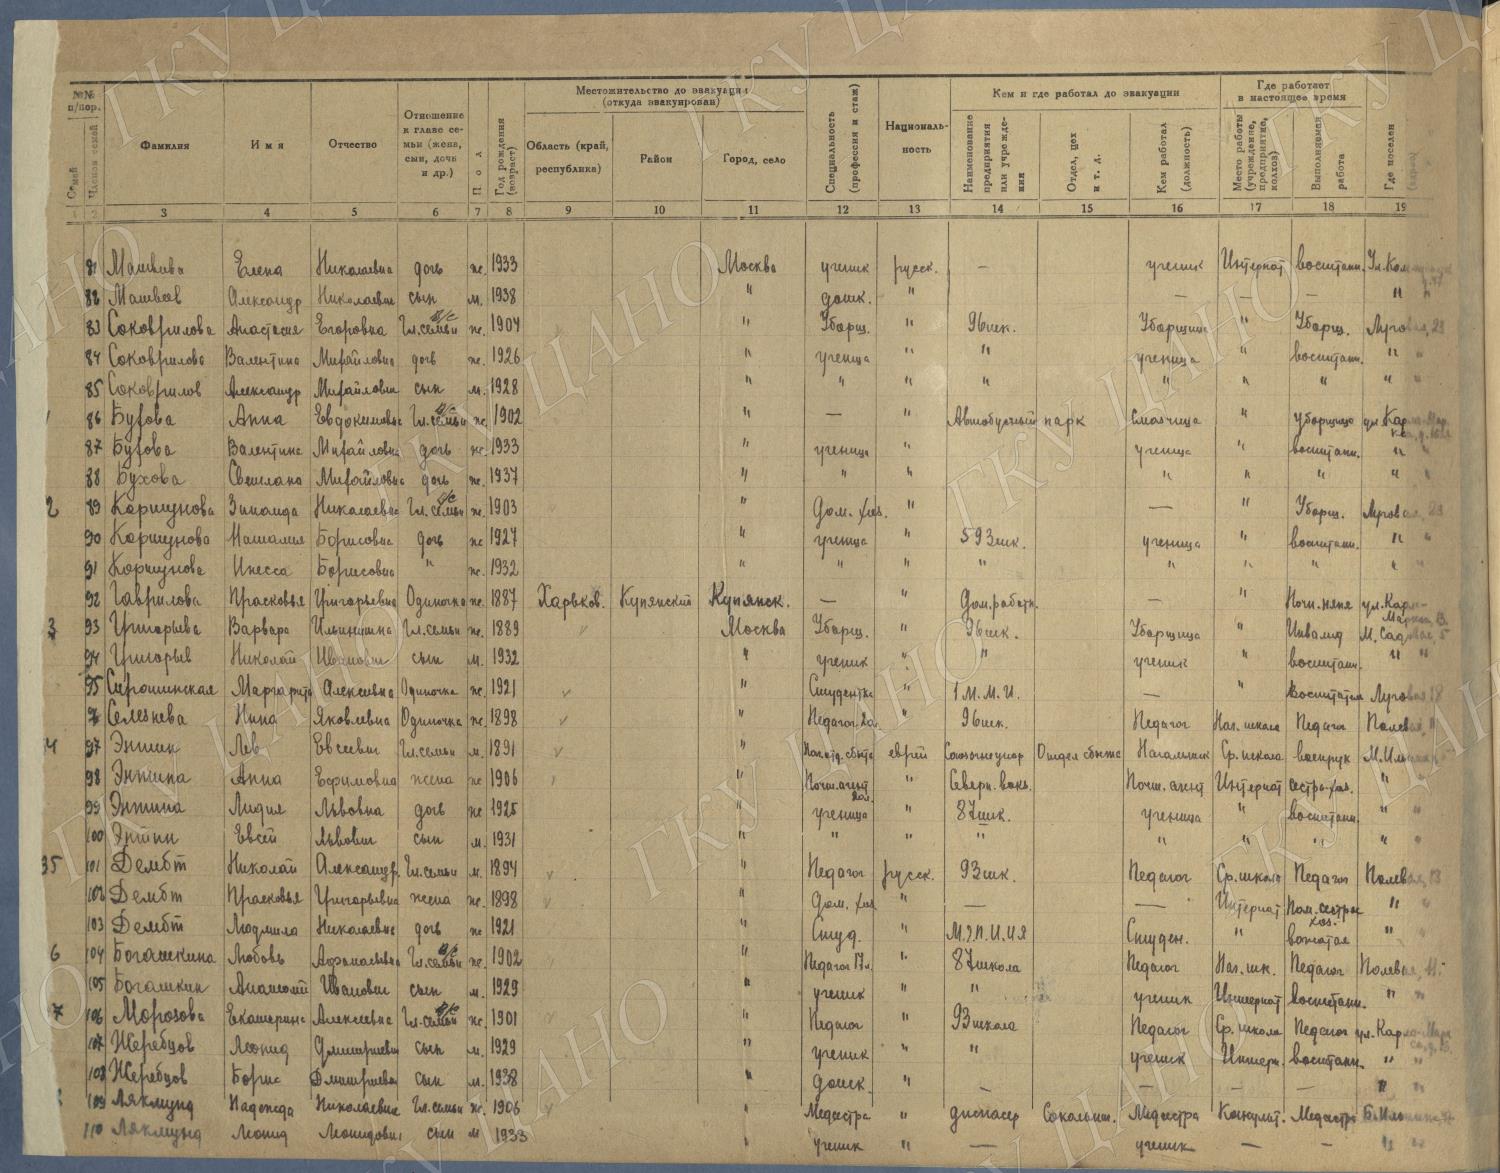 №№ п/пор. Местожительство до эвакуации (откуда эвакуирован) Кем и где работал до эвакуации Где работает в настоящее время
Семей Членов семей Фамилия Имя Отчество Отношение к главе семьи (жена, сын, дочь и др.) Пол Год рождения (возраст) Область (край, республика) Район Город, село Специальность (профессия и стаж) Националь-ность Наименование предприятия или учрежде-ния Отдел, цех и т. д. Кем работал (должность) Место работы (учреждение, предприятие, колхоз) Выполняемая работа Где поселен
1 2 3 4 5 6 7 8 9 10 11 12 13 14 15 16 17 18 19
81 Елена Николаевна дочь ж. 1933 Москва ученик русск. — ученик Интернат воспитан.
82 Матвеев Александр Николаевич сын м. 1938 " дошк. " — — — " "
83 Соковрилова Анастасия Егоровна Гл.семьи в/с ж. 1904 " Уборщ. " 96шк. Уборщица " Уборщ. Луговая, 23
84 Соковрилова Валентина Михайловна дочь ж. 1926 " ученица " " ученица " воспитан. " "
85 Соковрилов Александр Михайлович сын м. 1928 " " " " " " " " "
86 Бухова Анна Евдокимовна Гл.семьи в/с ж. 1902 " — " Автобусный парк " уборщица ул. Кар
87 Бухова Валентина Михайловна дочь ж. 1933 " ученица " ученица " воспитан. " "
88 Бухова Светлана Михайловна дочь ж. 1937 " " " " " " " "
2 89 Коршунова Зинаида Николаевна Гл.семьи в/с ж. 1903 " Дом. хоз. " — " Уборщ. Луговая, 23
90 Коршунова Наталия Борисовна дочь ж. 1927 " ученица " 593шк. ученица " воспитан. " "
91 Коршунова Инесса Борисовна " ж. 1932 " " " " " " " " "
92 Гаврилова Прасковья Григорьевна Одиночка ж. 1887 Харьков. Купянский Купянск. — " Дом.работн. — " Ночн.няня ул.Карла-Маркса, 13.
3 93 Григорьева Варвара Ильинишна Гл.семьи ж. 1889 " Москва Уборщ. " 96шк. Уборщица " Инвалид М. Садовая, 5
94 Григорьев Николай Иванович сын м. 1932 " ученик " " ученик " воспитан. " "
95 Маргарита Алексеевна Одиночка ж. 1921 " Студентка " 1 М.М.И. — " воспитател Луговая 18
96 Селезнева Нина Яковлевна Одиночка ж. 1898 " Педагог " 96шк. Педагог Нач. школа Педагог Полевая, "
94 97 Энтин Лев Евсеевич Гл.семьи м. 1891 " Нач.отд.сбыта еврей Отдел сбыта Начальник Ср. школа военрук
98 Энтина Анна Ефимовна жена ж 1906 " " Северн. вокз. Интернат сестра-хоз.
99 Энтина Лидия Львовна дочь ж 1925 " ученица " 87шк. ученица " воспитан. " "
100 Энтин Евсей Львович сын м. 1931 " " " " " " " " "
35 101 Дембт Николай Александр. Гл.семьи м. 1894 " Педагог русск. 93шк. Педагог Ср.школа Педагог Полевая, 13
102 Дембт Прасковья Григорьевна жена ж 1898 " Дом. хоз " — — Интернат Пом.сестры хоз. " "
103 Дембт Людмила Николаевна дочь ж 1921 " Студ. " Студен. " вожатая "
6 104 Богашкина Любовь Афанасьевна Гл.семьи в/с ж. 1902 " Педагог 17л. " 87школа Педагог Нач. шк. Педагог Полевая, 11.
105 Богашкин Анатолий Иванович сын м. 1929 " ученик " " ученик Интернат воспитан. " "
7 106 Морозова Екатерина Алексеевна Гл.семьи в/с ж. 1901 " Педагог " 93школа Педагог Ср. школа Педагог ул.Карла-Маркса, д. 13.
107 Жеребцов Леонид Дмитриевич сын м. 1929 " ученик " " ученик Интерн. воспитан. " "
108 Жеребцов Борис Дмитриевич сын м. 1938 " дошк. " — — — — " "
109 Лякмунд Надежда Николаевна Гл.семьи ж. 1906 " Медсестра " диспансер Сокольнич. Медсестра Консульт. Медсестра
110 Лякмунд Леонид Леонидович сын м 1933 " ученик " — ученик — — " "
ГКУ ЦАНО